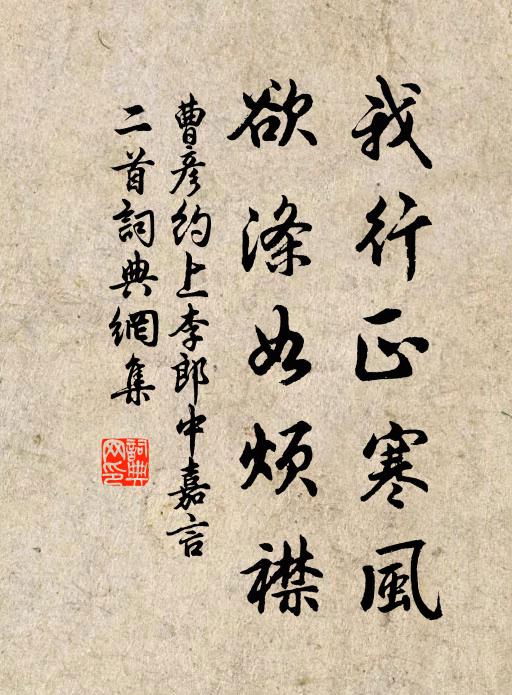 我行正寒風
欲滌如煩襟
曹彥約上李郎中嘉言
二首詞典網集
詞典网印